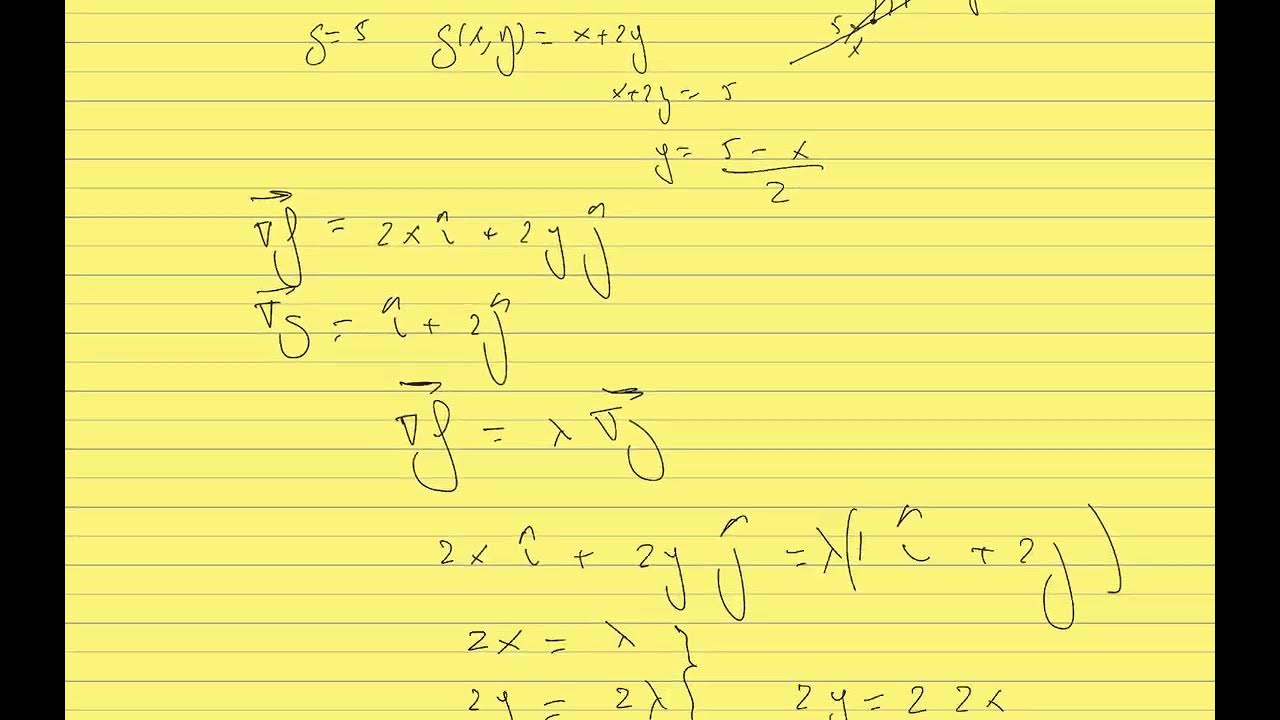 g = 5 g(x,y) = x+2y
5
x
x+2y = 5
y = (5 - x)/2
∇⃗f = 2x î + 2y ĵ
∇⃗g = î + 2ĵ
∇⃗f = λ ∇⃗g
2x î + 2y ĵ = λ(1 î + 2j)
2x = λ }
2y = 2λ 2y = 2 2x